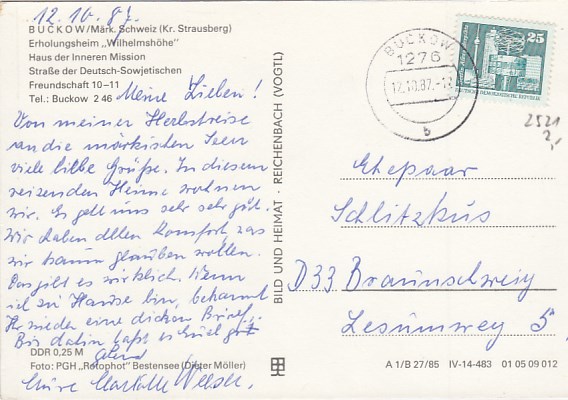 12.10.87.
BUCKOW/Märk. Schweiz (Kr. Strausberg)
Erholungsheim „Wilhelmshöhe"
Haus der Inneren Mission
Straße der Deutsch-Sowjetischen
Freundschaft 10–11
Tel.: Buckow 2 46
Meine Lieben!
Von meiner Herbstreise
an die märkischen Seen
viele liebe Grüße. In diesem
reizenden Heime wohnen
wir. Es geht uns sehr sehr gut.
Wir haben allen Komfort, was
wir kaum glauben wollen.
Das gibt es wirklich. Wenn
ich zu Hause bin, bekommt
Ihr wieder eine dicken Brief.
Bis dahin laßt es Euch gut
gehen
Eure Charlotte
DDR 0,25 M
Foto: PGH „Rotophot" Bestensee (Dieter Möller)
BILD UND HEIMAT · REICHENBACH (VOGTL)
BUCKOW
1276
12.10.87.-12
b
25
DEUTSCHE DEMOKRATISCHE REPUBLIK
2521
2,-
Ehepaar
Schlitzkus
D33 Braunschweig
Lesumweg 5
A 1/B 27/85 IV-14-483 01 05 09 012